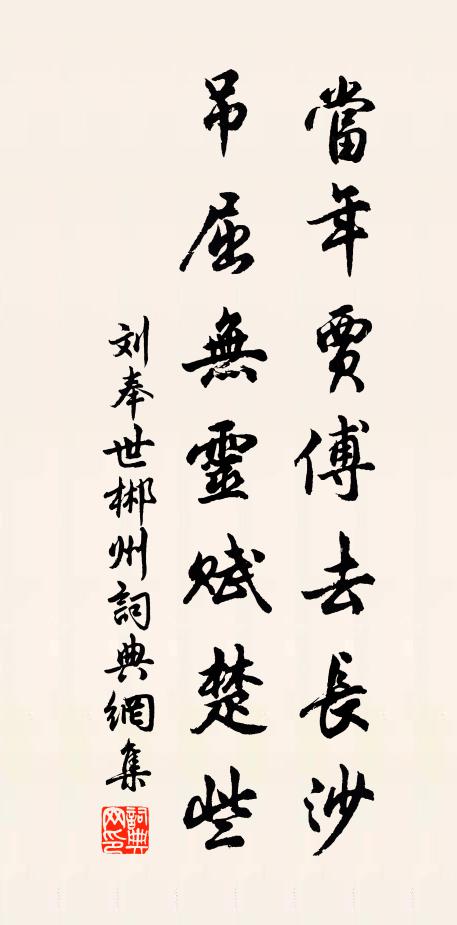 當年賈傅去長沙
吊屈無靈賦楚些
刘奉世郴州詞典網集
詞典網印